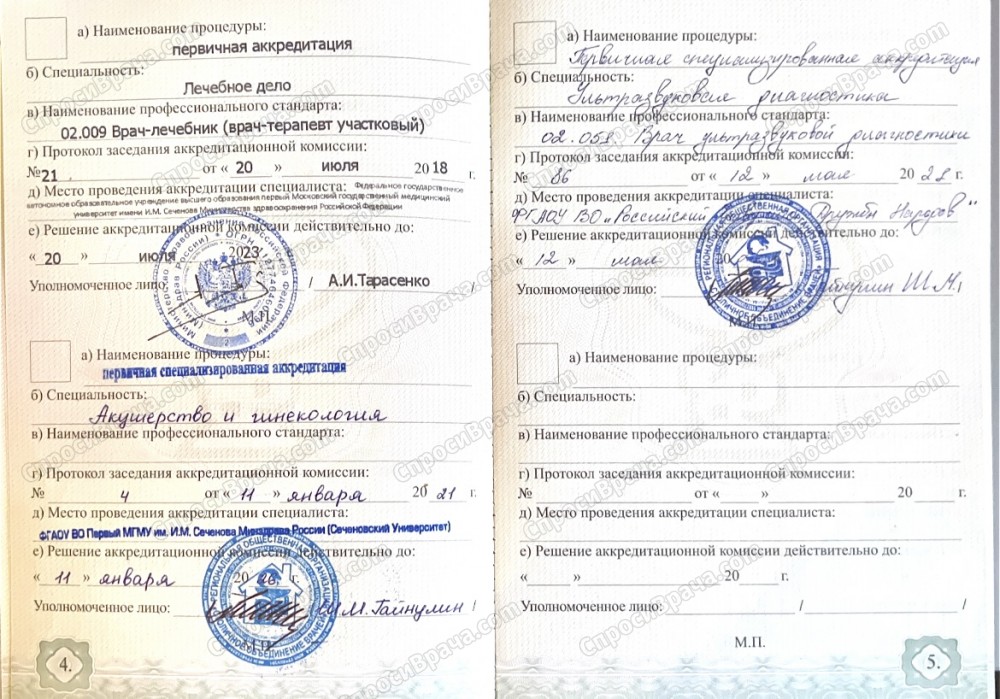 а) Наименование процедуры:
первичная аккредитация
б) Специальность:
Лечебное дело
в) Наименование профессионального стандарта:
02.009 Врач-лечебник (врач-терапевт участковый)
г) Протокол заседания аккредитационной комиссии:
№21 . от « 20 » июля 2018 г.
д) Место проведения аккредитации специалиста: Федеральное государственное
автономное образовательное учреждение высшего образования первый Московский государственный медицинский
университет имени И.М. Сеченова Министерства здравоохранения Российской Федерации
е) Решение аккредитационной комиссии действительно до:
« 20 » июля 2023
Уполномоченное лицо: / А.И.Тарасенко /
М.П.
а) Наименование процедуры:
первичная специализированная аккредитация
б) Специальность:
Акушерство и гинекология
в) Наименование профессионального стандарта:
г) Протокол заседания аккредитационной комиссии:
№ 4 от « 11 » января 20 21 г.
д) Место проведения аккредитации специалиста:
ФГАОУ ВО Первый МГМУ им. И.М. Сеченова Минздрава России (Сеченовский Университет)
е) Решение аккредитационной комиссии действительно до:
« 11 » января 20 26 г.
Уполномоченное лицо: / Ш.М.Гайнулин /
М.П.
4.
а) Наименование процедуры:
Первичная специализированная аккредитация
б) Специальность:
Ультразвуковая диагностика
в) Наименование профессионального стандарта:
02.051 Врач ультразвуковой диагностики
г) Протокол заседания аккредитационной комиссии:
№ 86 от « 12 » мая 20 г.
д) Место проведения аккредитации специалиста:
ФГАОУ ВО "Российский Дружбы Народов"
е) Решение аккредитационной комиссии действительно до:
« 12 » мая 20
Уполномоченное лицо: Гайнулин Ш.М.
М.П.
а) Наименование процедуры:
б) Специальность:
в) Наименование профессионального стандарта:
г) Протокол заседания аккредитационной комиссии:
№ от « » 20 г.
д) Место проведения аккредитации специалиста:
е) Решение аккредитационной комиссии действительно до:
« » 20 г.
Уполномоченное лицо: / /
М.П.
5.
СпросиВрача.com